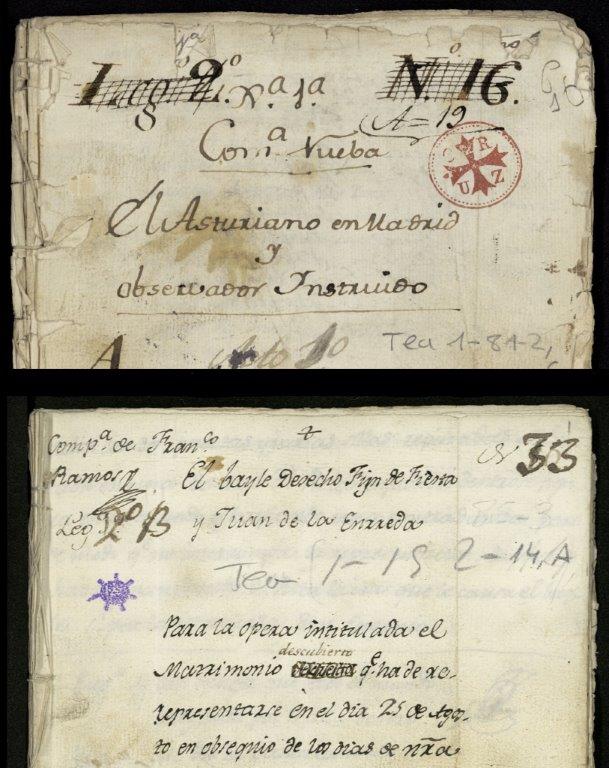 Leg.º 2.º N.º 16.
1.ª
A=19
Com.ª Nueba
CRUZ
El Asturiano en Madrid
y
observador Instruido
Tea 1-81-2,
A
Comp.ª de Fran.co
Ramos
N 33
El bayle Derecho Fijn de Fiesta
Leg. 2º B
y Juan de la Enrreda
Tea 1-152-14, A
Para la opera intitulada el
descubierto
Matrimonio q.e ha de re-
representarse en el dia 25 de Agos-
to en obsequio de los dias de nrã